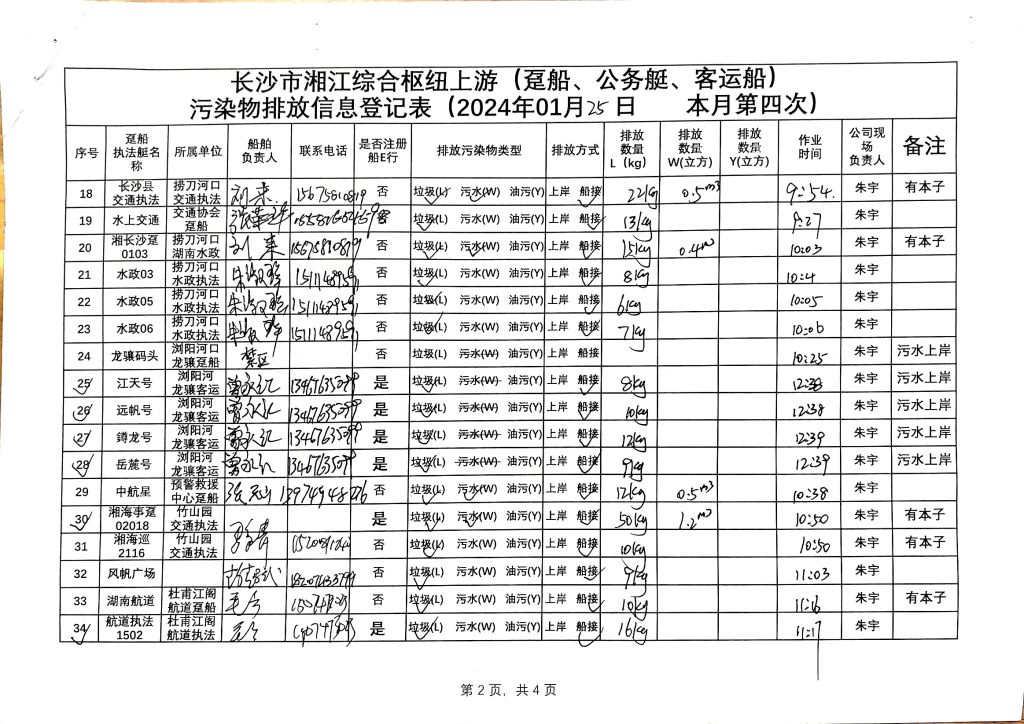 长沙市湘江综合枢纽上游（趸船、公务艇、客运船）
污染物排放信息登记表（2024年01月25日 本月第四次）
序号 趸船执法艇名称 所属单位 船舶负责人 联系电话 是否注册船E行 排放污染物类型 排放方式 排放数量L（kg） 排放数量W(立方) 排放数量Y(立方) 作业时间 公司现场负责人 备注
18 长沙县交通执法 捞刀河口交通执法 刘来 否 垃圾(L) 污水(W) 油污(Y) 上岸 船接 22kg 0.5m3 9:54 朱宇 有本子
19 水上交通 交通协会趸船 否 垃圾(L) 污水(W) 油污(Y) 上岸 船接 13kg 9:27 朱宇
20 湘长沙趸0103 捞刀河口湖南水政 刘来 否 垃圾(L) 污水(W) 油污(Y) 上岸 船接 15kg 0.4m3 10:03 朱宇 有本子
21 水政03 捞刀河口水政执法 否 垃圾(L) 污水(W) 油污(Y) 上岸 船接 8kg 10:4 朱宇
22 水政05 捞刀河口水政执法 否 垃圾(L) 污水(W) 油污(Y) 上岸 船接 6kg 10:05 朱宇
23 水政06 捞刀河口水政执法 否 垃圾(L) 污水(W) 油污(Y) 上岸 船接 7kg 10:06 朱宇
24 龙骧码头 浏阳河口龙骧趸船 禁区 否 垃圾(L) 污水(W) 油污(Y) 上岸 船接 10:25 朱宇 污水上岸
25 江天号 浏阳河龙骧客运 是 垃圾(L) 污水(W) 油污(Y) 上岸 船接 8kg 朱宇 污水上岸
26 远帆号 浏阳河龙骧客运 是 垃圾(L) 污水(W) 油污(Y) 上岸 船接 10kg 12:38 朱宇 污水上岸
27 鐏龙号 浏阳河龙骧客运 是 垃圾(L) 污水(W) 油污(Y) 上岸 船接 12kg 12:39 朱宇 污水上岸
28 岳麓号 浏阳河龙骧客运 是 垃圾(L) 污水(W) 油污(Y) 上岸 船接 9kg 12:39 朱宇 污水上岸
29 中航星 预警救援中心趸船 否 垃圾(L) 污水(W) 油污(Y) 上岸 船接 12kg 0.5m3 10:38 朱宇
30 湘海事趸02018 竹山园交通执法 是 垃圾(L) 污水(W) 油污(Y) 上岸 船接 50kg 1.2m3 10:50 朱宇 有本子
31 湘海巡2116 竹山园交通执法 否 垃圾(L) 污水(W) 油污(Y) 上岸 船接 10kg 10:50 朱宇 有本子
32 风帆广场 否 垃圾(L) 污水(W) 油污(Y) 上岸 船接 9kg 11:03 朱宇
33 湖南航道 杜甫江阁航道趸船 否 垃圾(L) 污水(W) 油污(Y) 上岸 船接 10kg 11:16 朱宇 有本子
34 航道执法1502 杜甫江阁航道执法 是 垃圾(L) 污水(W) 油污(Y) 上岸 船接 16kg 11:17 朱宇
第 2 页，共 4 页